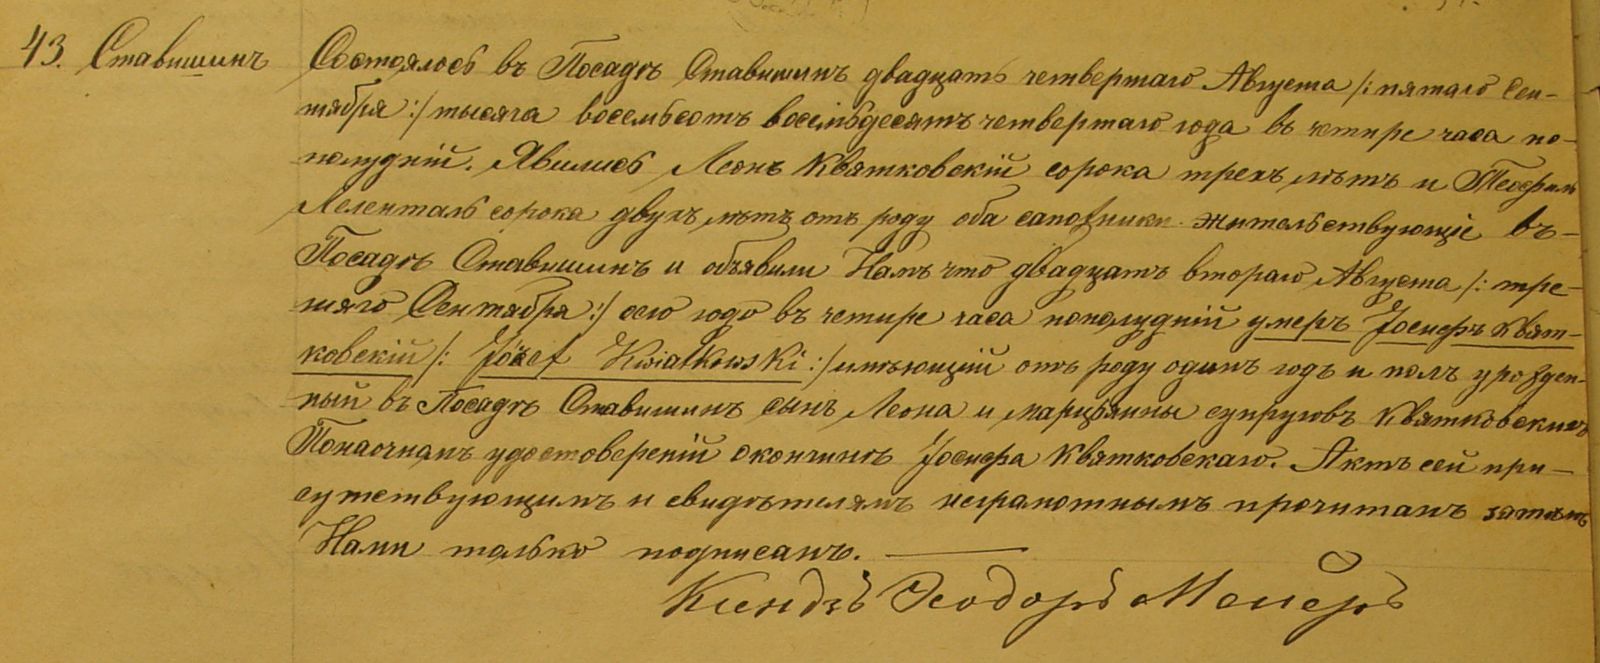 43. Ставишинъ
Состоялось въ Посадѣ Ставишинъ двадцать четвертаго Августа /: пятаго Сен-
тября :/ тысяча восемьсотъ восемьдесятъ четвертаго года въ четире часа по-
полудній. Явились Леонъ Квятковскій сорока трехъ лѣтъ и Теофилъ
сорока двухъ лѣтъ отъ роду оба сапожники жительствующіе въ-
Посадѣ Ставишинъ и объявили Намъ что двадцать втораго Августа /: тре-
тяго Сентября :/ сего года въ четире часа пополудній умеръ Іосиеръ Квят-
ковскій /: Józef Kwiatkowski :/ имѣющій отъ роду одинъ годъ и полъ урожден-
ный въ Посадѣ Ставишинъ сынъ Леона и Марцыянны супруговъ Квятковскихъ
удостоверений окончинѣ Іосифа Квятковскаго. Актъ сей при-
сутствующимъ и свидѣтелямъ неграмотнымъ прочитанъ затѣмъ
Нами только подписанъ.
Ксендзъ Теодоръ